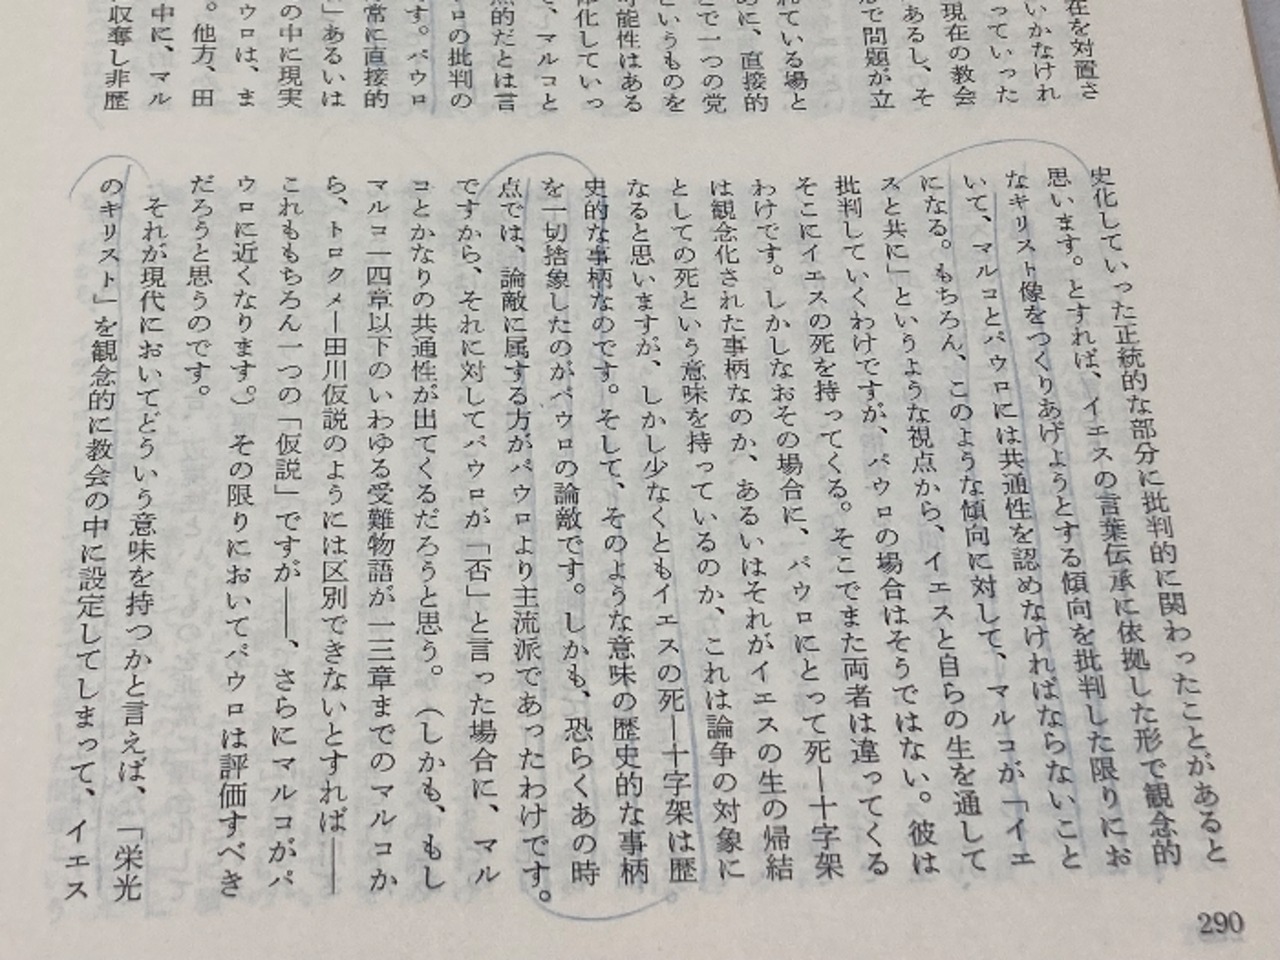 在を対置さ
いかなけれ
っていった
現在の教会
あるし、そ
で問題が立
れている場と
めに、直接的
とで一つの党
というものを
可能性はある
体化していっ
、マルコと
点的だとは言
ウロの批判の
す。パウロ
常に直接的
」あるいは
の中に現実
ウロは、ま
。他方、田
中に、マル
収奪し非歴
史化していった正統的な部分に批判的に関わったことがあると
思います。とすれば、イエスの言葉伝承に依拠した形で観念的
なキリスト像をつくりあげようとする傾向を批判した限りにお
いて、マルコとパウロには共通性を認めなければならないこと
になる。もちろん、このような傾向に対して、マルコが「イエ
スと共に」というような視点から、イエスと自らの生を通して
批判していくわけですが、パウロの場合はそうではない。彼は
そこにイエスの死を持ってくる。そこでまた両者は違ってくる
わけです。しかしなおその場合に、パウロにとって死—十字架
は観念化された事柄なのか、あるいはそれがイエスの生の帰結
としての死という意味を持っているのか、これは論争の対象に
なると思いますが、しかし少なくともイエスの死—十字架は歴
史的な事柄なのです。そして、そのような意味の歴史的な事柄
を一切捨象したのがパウロの論敵です。しかも、恐らくあの時
点では、論敵に属する方がパウロより主流派であったわけです。
ですから、それに対してパウロが「否」と言った場合に、マル
コとかなりの共通性が出てくるだろうと思う。（しかも、もし
マルコ一四章以下のいわゆる受難物語が一三章までのマルコか
ら、トロクメ—田川仮説のようには区別できないとすれば——
これももちろん一つの「仮説」ですが——、さらにマルコがパ
ウロに近くなります。）その限りにおいてパウロは評価すべき
だろうと思うのです。
それが現代においてどういう意味を持つかと言えば、「栄光
のキリスト」を観念的に教会の中に設定してしまって、イエス
290